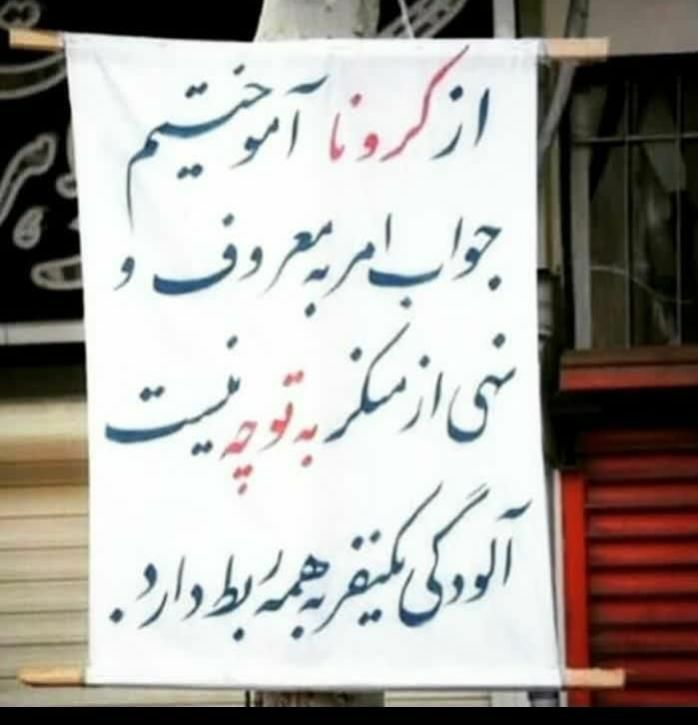 از کرونا آموختیم
جواب امر به معروف و
نهی از منکر به تو چه نیست
آلودگی یکنفر به همه ربط دارد.